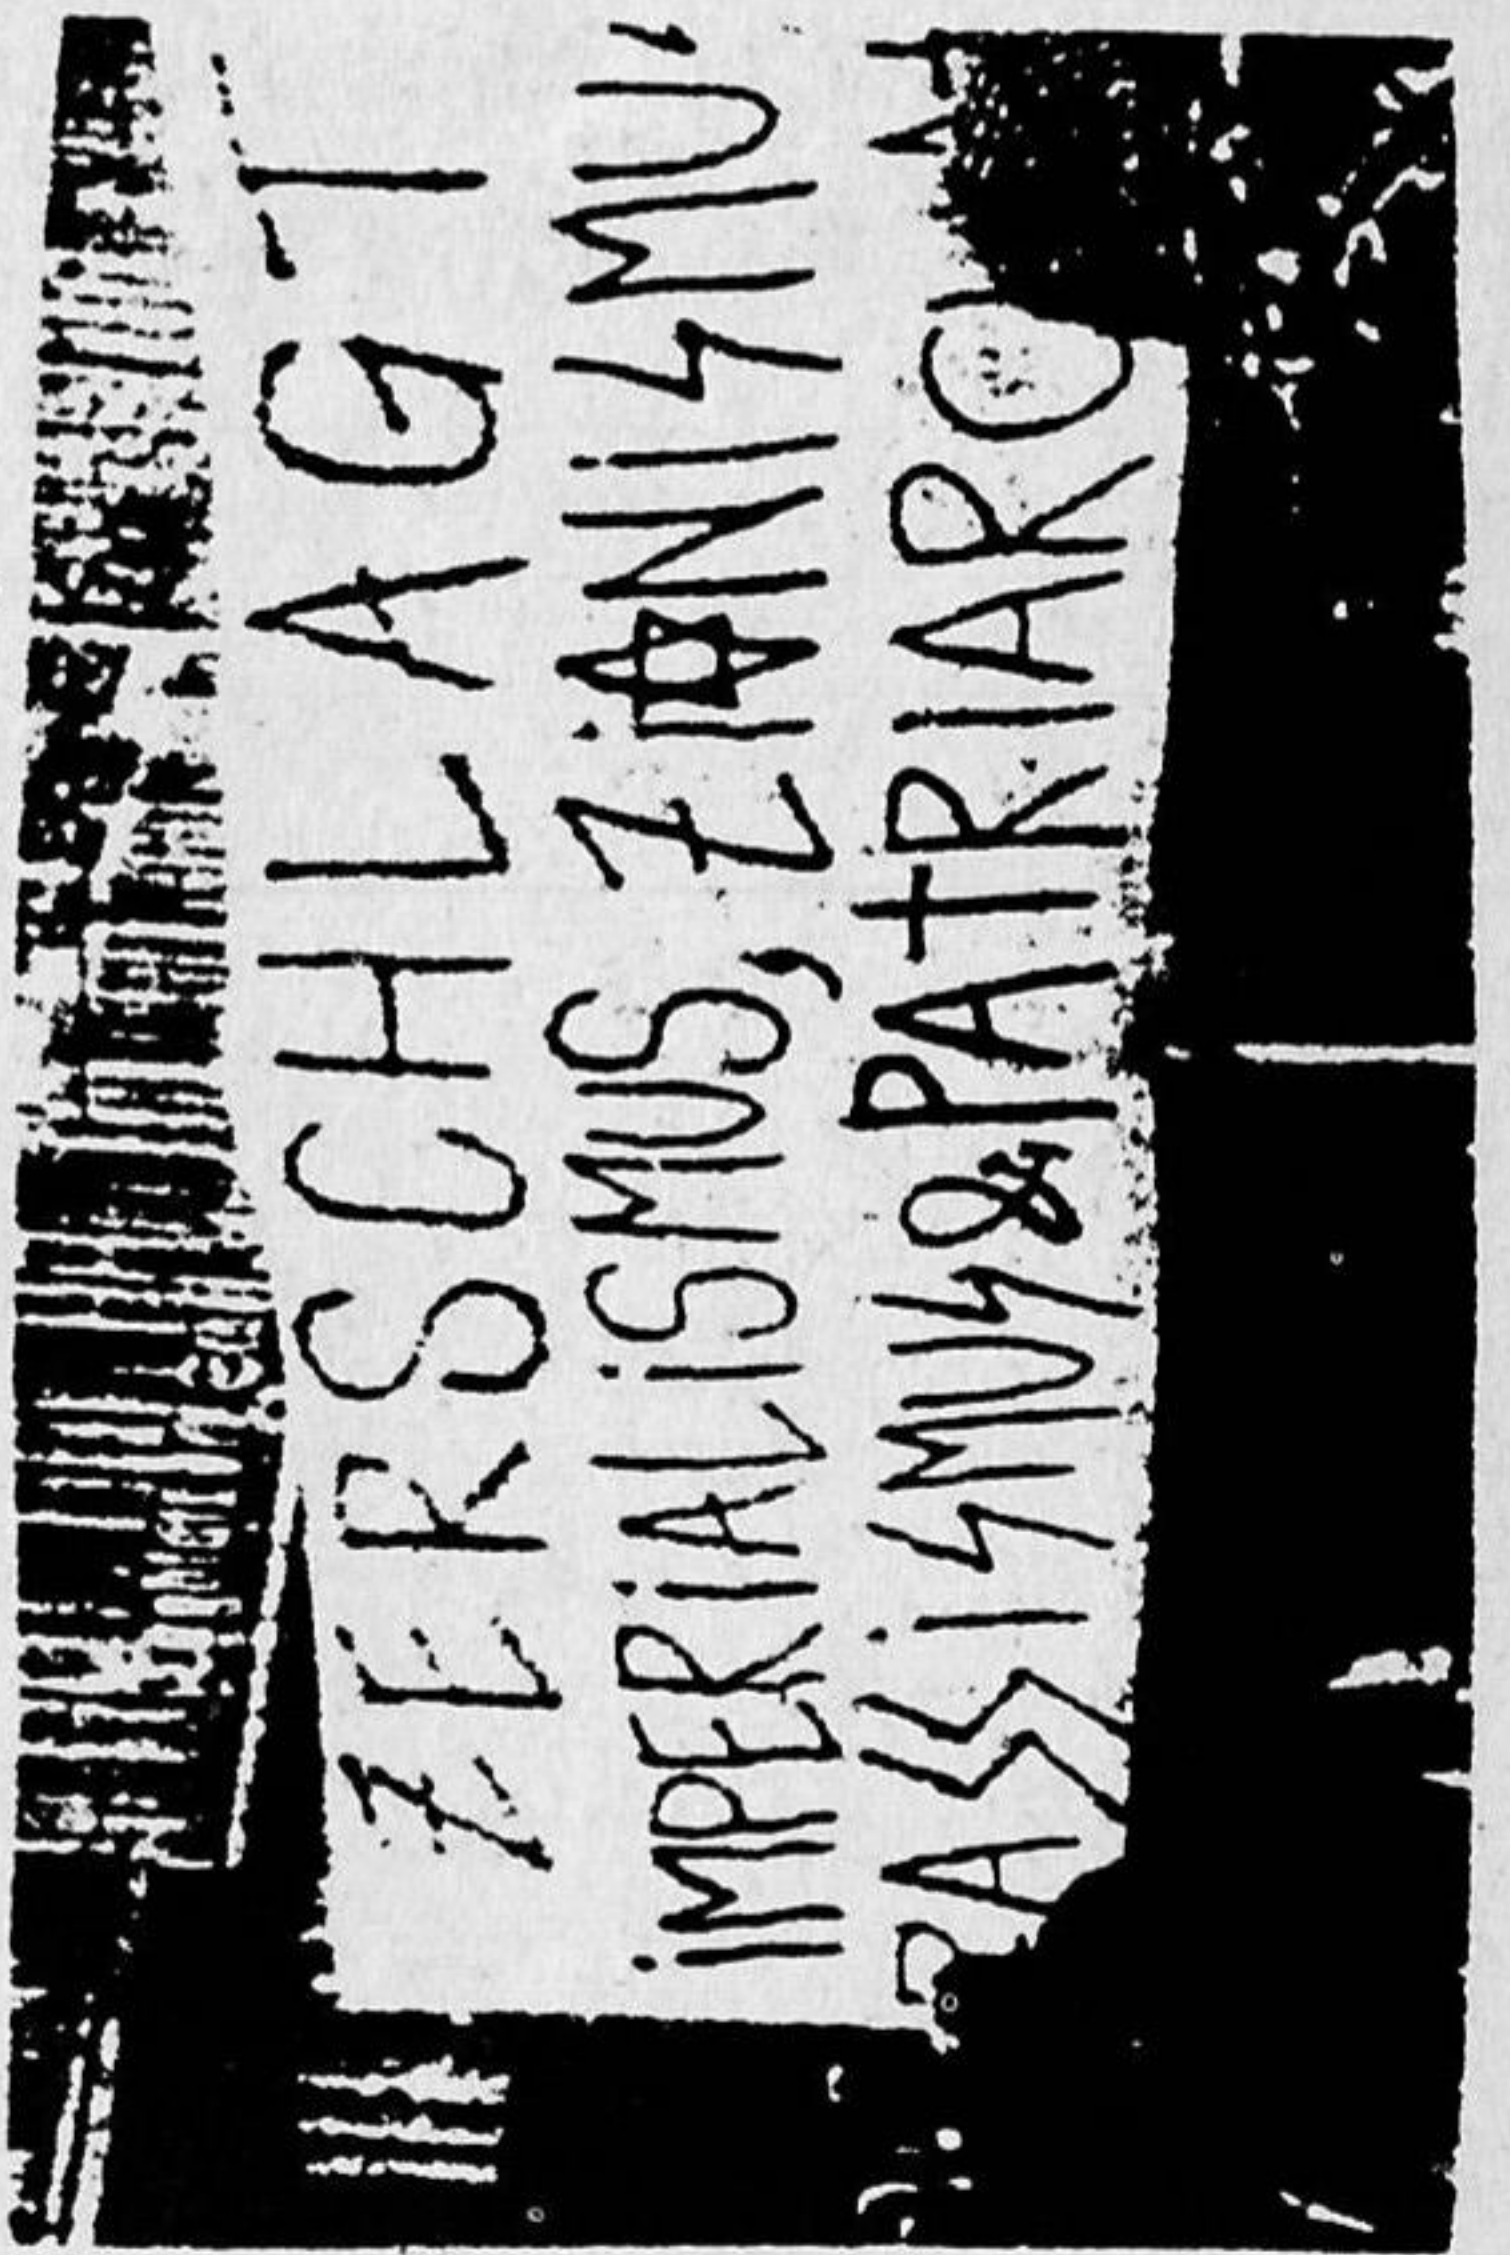 ZERSCHLAGT
iMPERiALiSMUS, Zi✡NiSMU
RASSiSMUS & PATRIARCHAT